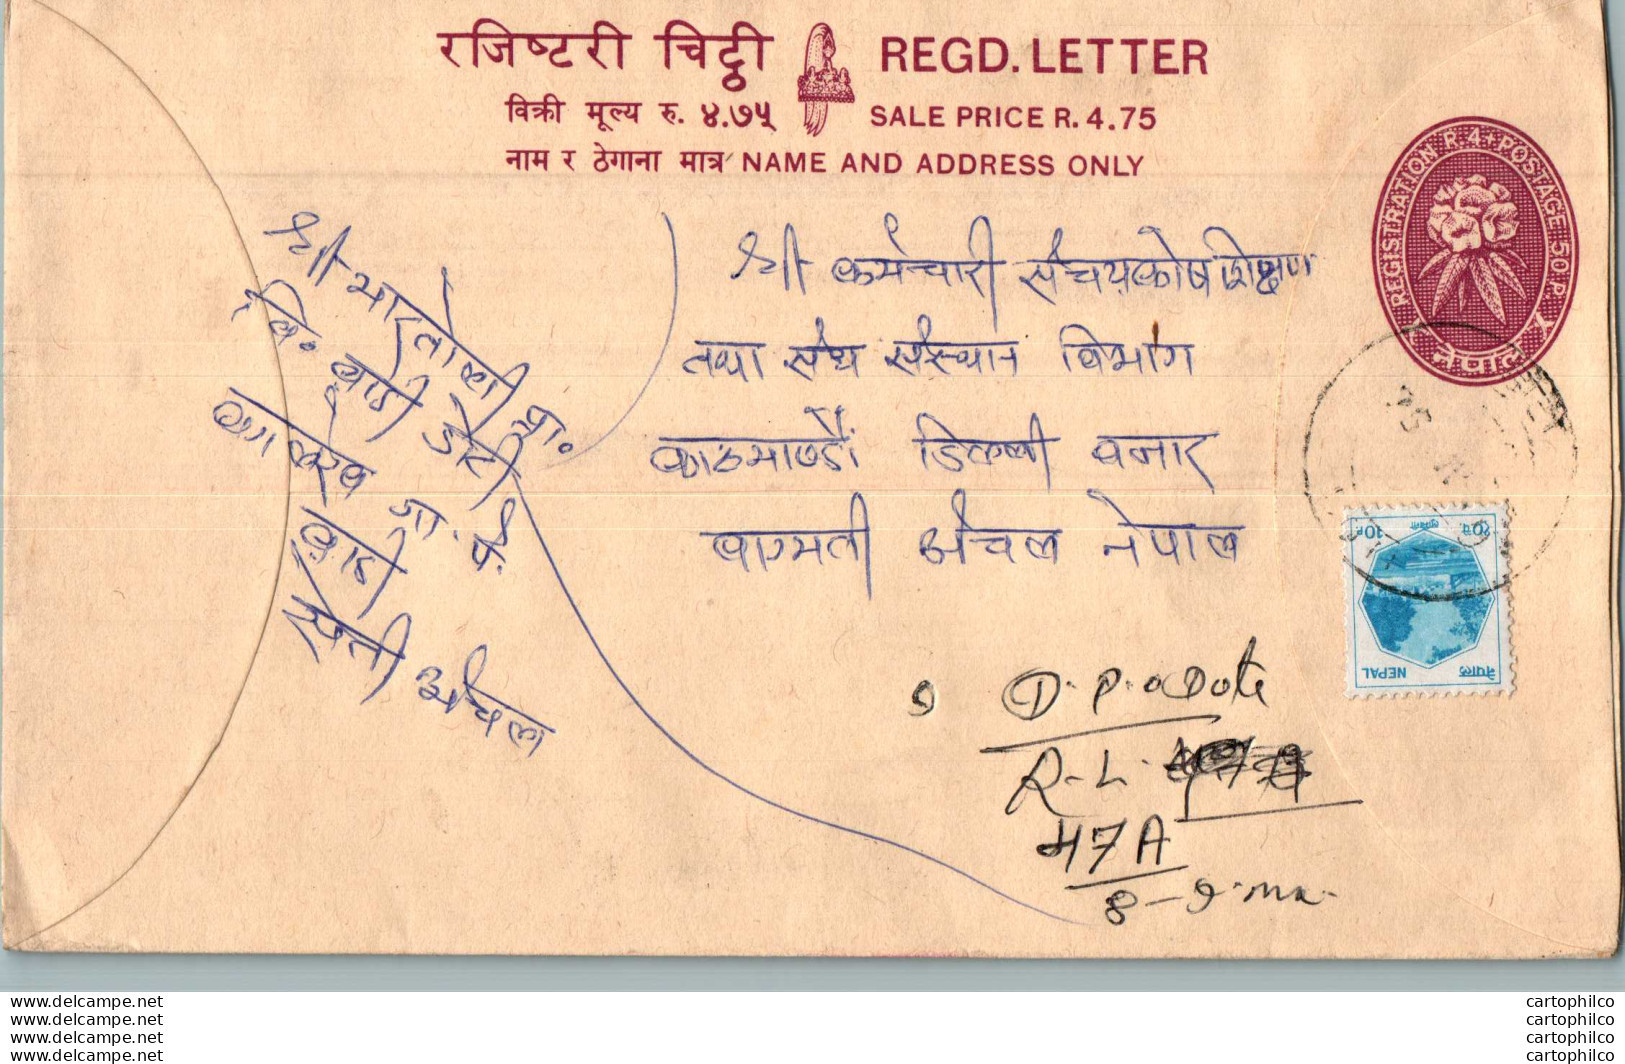 रजिष्टरी चिट्ठी REGD. LETTER
विक्री मूल्य रु. ४.७५ SALE PRICE R. 4.75
नाम र ठेगाना मात्र NAME AND ADDRESS ONLY
REGISTRATION R.4+POSTAGE 50 P.
नेपाल
श्री कर्मचारी संचयकोष शिक्षण
तथा संघ संस्थान विभाग
काठमाण्डौं डिल्ली बजार
बाग्मती अंचल नेपाल
श्री भारतोली प्रा.
वि. डोटी
जा. पं.
सेती अंचल
१० प. लुम्बिनी 10 P
नेपाल NEPAL
D.P.O Doti
R-L.
47A
8-9-
www.delcampe.net cartophilco
www.delcampe.net cartophilco
www.delcampe.net cartophilco
www.delcampe.net cartophilco